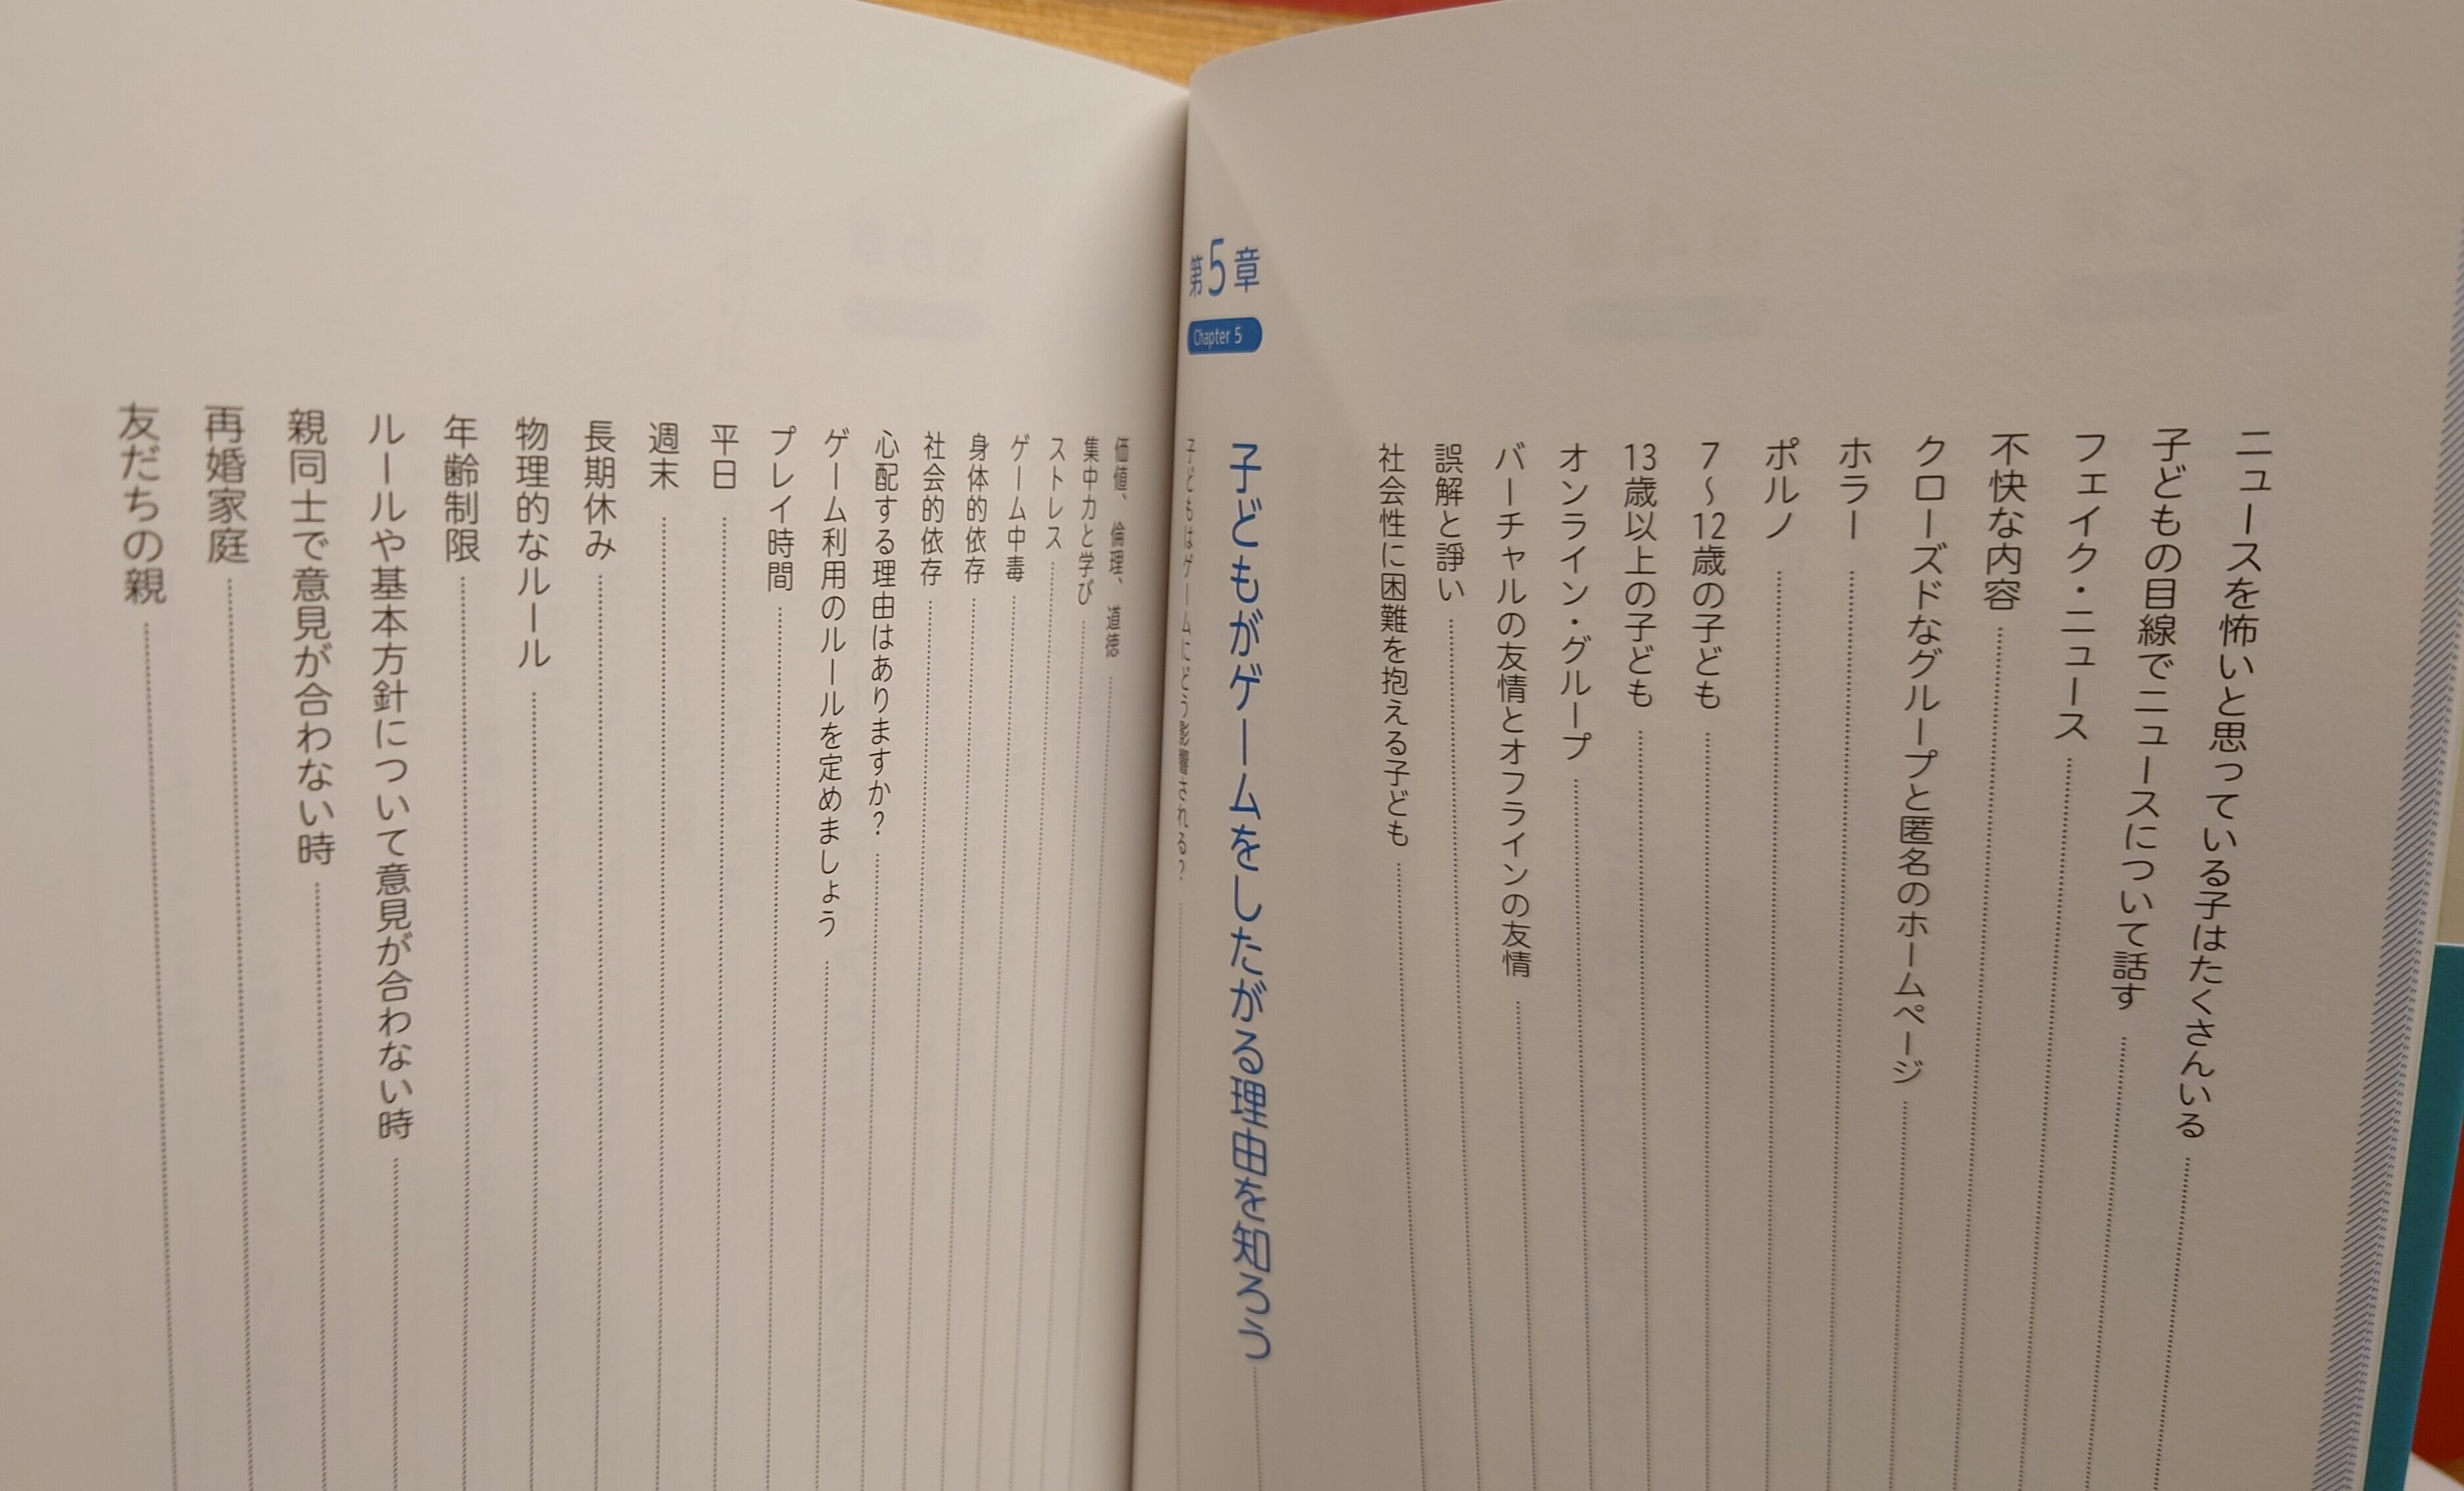 ニュースを怖いと思っている子はたくさんいる
子どもの目線でニュースについて話す
フェイク・ニュース
不快な内容
クローズドなグループと匿名のホームページ
ホラー
ポルノ
7〜12歳の子ども
13歳以上の子ども
オンライン・グループ
バーチャルの友情とオフラインの友情
誤解と諍い
社会性に困難を抱える子ども
第5章
Chapter 5
子どもがゲームをしたがる理由を知ろう
子どもはゲームにどう影響される？
価値、倫理、道徳
集中力と学び
ストレス
ゲーム中毒
身体的依存
社会的依存
心配する理由はありますか？
ゲーム利用のルールを定めましょう
プレイ時間
平日
週末
長期休み
物理的なルール
年齢制限
ルールや基本方針について意見が合わない時
親同士で意見が合わない時
再婚家庭
友だちの親